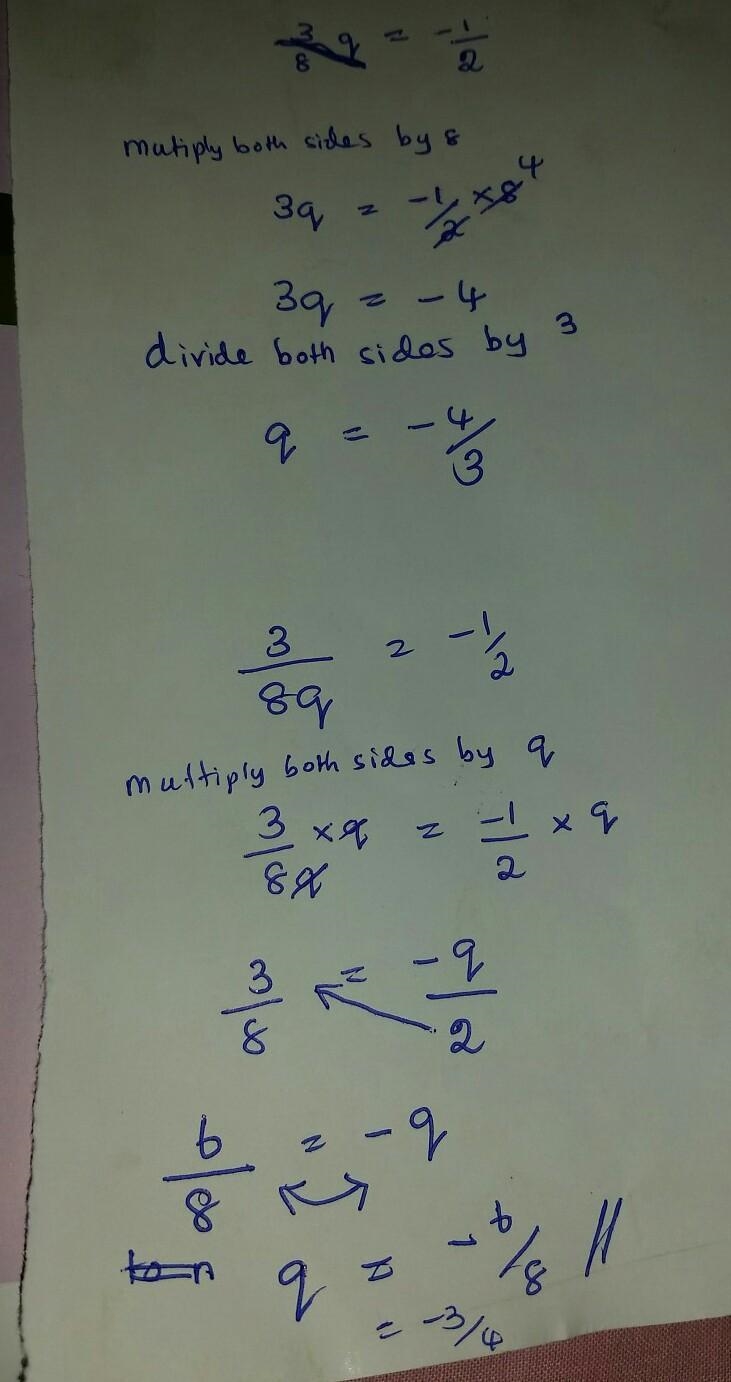 3/8 q = -1/2
mutiply both sides by 8
3q = -1/2 × 8 4
3q = -4
divide both sides by 3
q = -4/3
3/8q = -1/2
multiply both sides by q
3/8q × q = -1/2 × q
3/8 = -q/2
6/8 = -q
q = -6/8 //
= -3/4